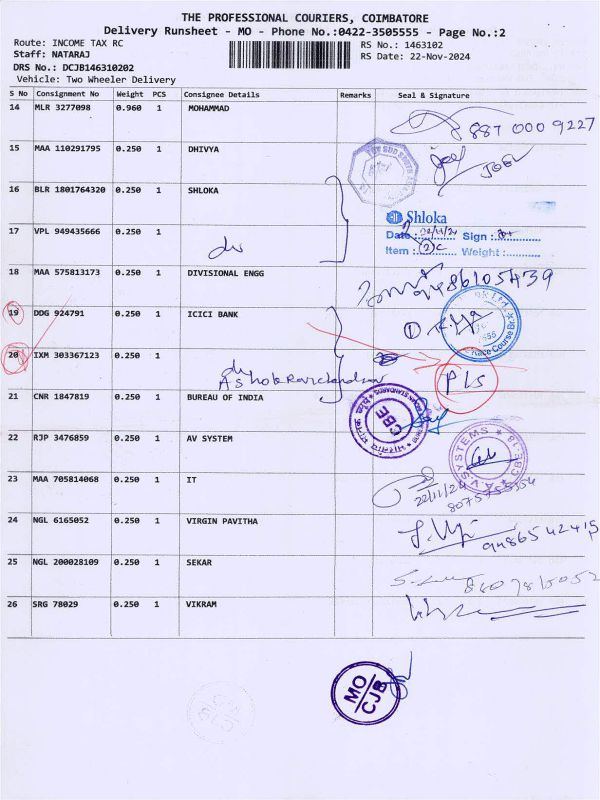 THE PROFESSIONAL COURIERS, COIMBATORE
Delivery Runsheet - MO - Phone No.:0422-3505555 - Page No.:2
Route: INCOME TAX RC
RS No.: 1463102
Staff: NATARAJ
RS Date: 22-Nov-2024
DRS No.: DCJB146310202
Vehicle: Two Wheeler Delivery
S No Consignment No Weight PCS Consignee Details Remarks Seal & Signature
14 MLR 3277098 0.960 1 MOHAMMAD
887 000 9227
15 MAA 110291795 0.250 1 DHIVYA
JOEL
16 BLR 1801764320 0.250 1 SHLOKA
Shloka
17 VPL 949435666 0.250 1
Date : 22/11/24 Sign :
Item : (2)c Weight :
18 MAA 575813173 0.250 1 DIVISIONAL ENGG
9486105439
19 DDG 924791 0.250 1 ICICI BANK
1
Race Course Br.
20 IXM 303367123 0.250 1
P/S
21 CNR 1847819 0.250 1 BUREAU OF INDIA
CBE
22 RJP 3476859 0.250 1 AV SYSTEM
A.V.SYSTEMS CBE-18
23 MAA 705814068 0.250 1 IT
22/11/24
24 NGL 6165052 0.250 1 VIRGIN PAVITHA
9486542415
25 NGL 200028109 0.250 1 SEKAR
26 SRG 78029 0.250 1 VIKRAM
MO
CJB